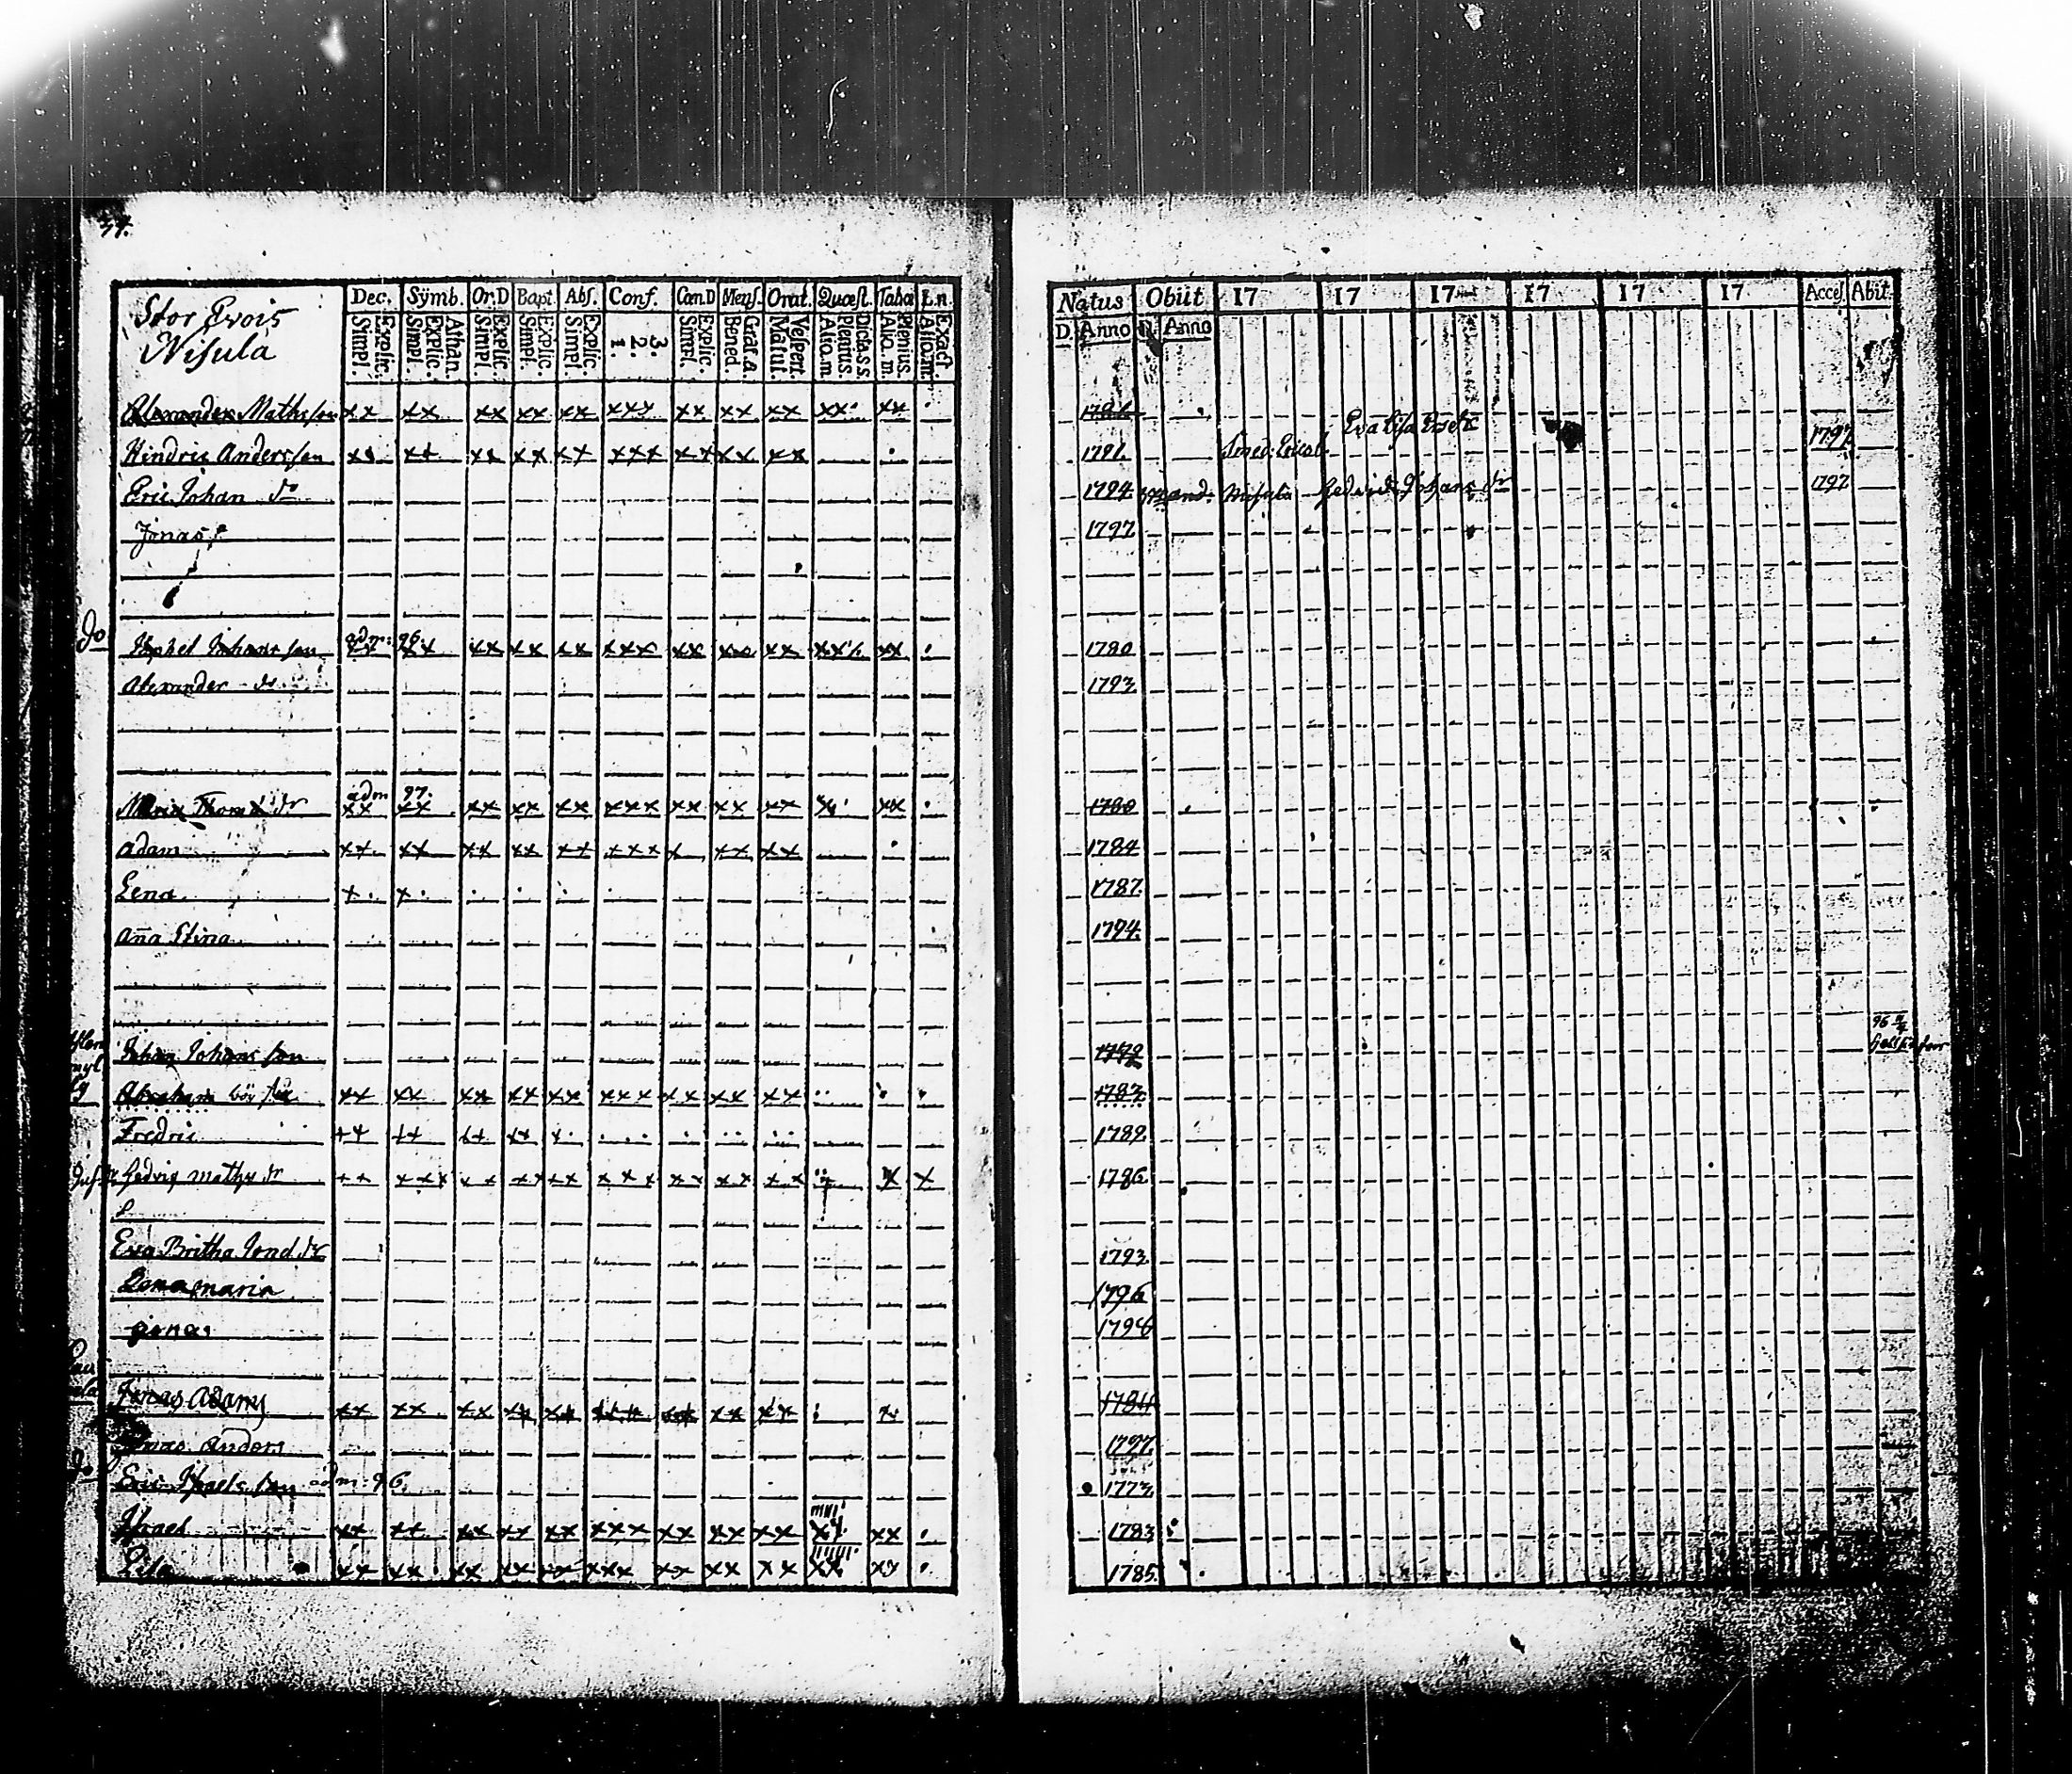 34.
Stor Evois
Nisula
Dec. Symb. Or.D Bapt. Abs. Conf. Cœn.D Mens. Orat. Quæst. Taba L.n.
Simpl. Explic. Simpl. Explic. Athan. Simpl. Explic. Simpl. Explic. Simpl. Explic. 1. 2. 3. Simpl. Explic. Bened. Grat. a. Matut. Vespert. Aliq. m. Plenius. Dicta s.s. Aliq. m. Plenius. Aliq. m. Exact.
Natus Obiit 17 17 17 17 17 17 Accес. Abit.
D. Anno D. Anno
Alexander Mathsson xx xx xx xx xx xxx xx xx xx xx xx
Eva Lisa
Hindric Andersson xx xx xx xx xx xxx xx xx xx 1791. 1797
Eric Johan do 1794. Nisula Hedvig Johans dr 1797
Jonas 1797.
do
Johansson adm: 96. xx xx xx xx xx xxx xx xx xx xx xx 1780
Alexander do 1793.
adm 97.
Maria Thomæ dr xx xx xx xx xx xxx xx xx xx xx 1780
Adam xx xx xx xx xx xxx x xx xx 1784
Lena x x 1787.
Aña Stina 1794.
96
Johan Johansson
Abraham xx xx xx xx xx xxx xx xx xx 1783.
Fredric 1789.
Hedvig Maths dr xx xxx xx xx xx xxx xx xx xx x x 1786
Eva Britha Jond. dr 1793.
maria 1796
Jonas 1798
Jonas Adams xx xx xx xx xx xx xx xx xx 1784
Jonas Anders 1797.
do
Eric Israelsson adm: 96. 1773.
Israel xx xx xx xx xx xxx xx xx xx xx xx 1783
Lisa xx xx xx xx xx xxx xx xx xx xx xx 1785